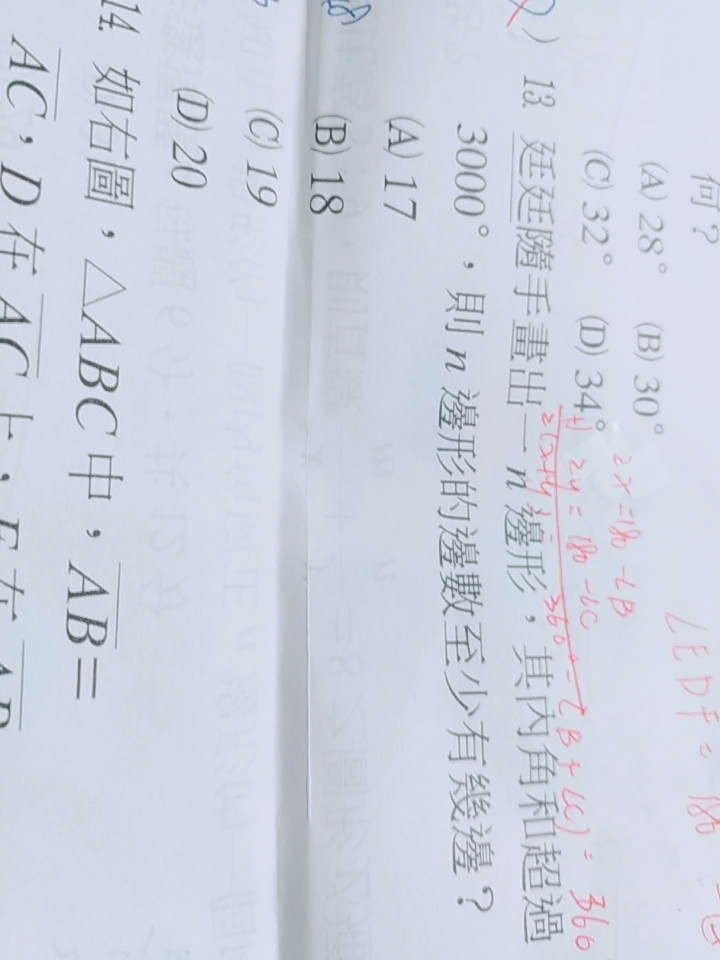 何？
(A) 28° (B) 30°
(C) 32° (D) 34°
2x=180-∠B
2y=180-∠C
2(x+y)=360-(∠B+∠C)=360
∠EDF=180
13. 廷廷隨手畫出一 n 邊形，其內角和超過
3000°，則 n 邊形的邊數至少有幾邊？
(A) 17
(B) 18
(C) 19
(D) 20
14. 如右圖，△ABC 中，AB=
AC，D 在 AC 上、F 在 AB